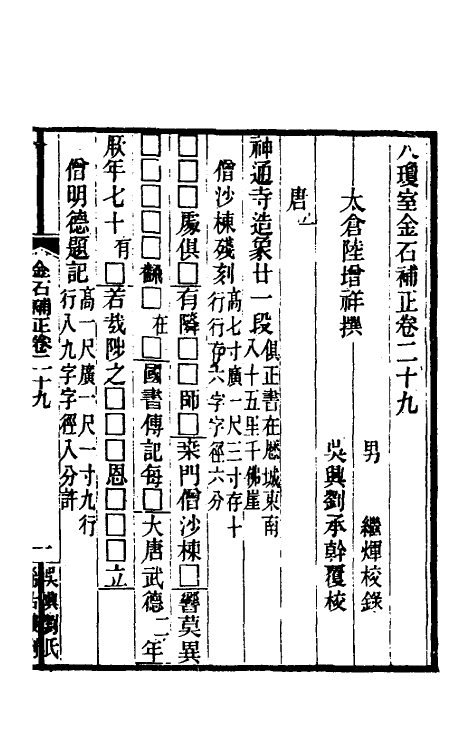 八瓊室金石補正卷二十九
太倉陸增祥撰
男 繼煇校錄
吳興劉承幹覆校
唐一
神通寺造象廿一段俱正書在歷城東南八十五里千佛崖
僧沙棟殘刻高七寸廣一尺三寸存十行行存六字字徑六分
□□□處俱□有隣□□師□桒門僧沙棟□響莫異
□□□□□□在□國書傳記每□大唐武德二年
厥年七十有□若哉陟之□□□恩□□□□立
僧明德題記高一尺廣一尺一寸九行行八九字字徑八分許
金石補正卷二十九
一
吳興劉氏